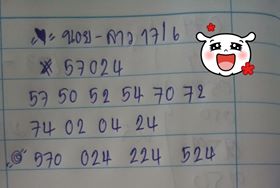 ฮอย - ลาว 17/6
57024
57 50 52 54 70 72
74 02 04 24
570 024 224 524